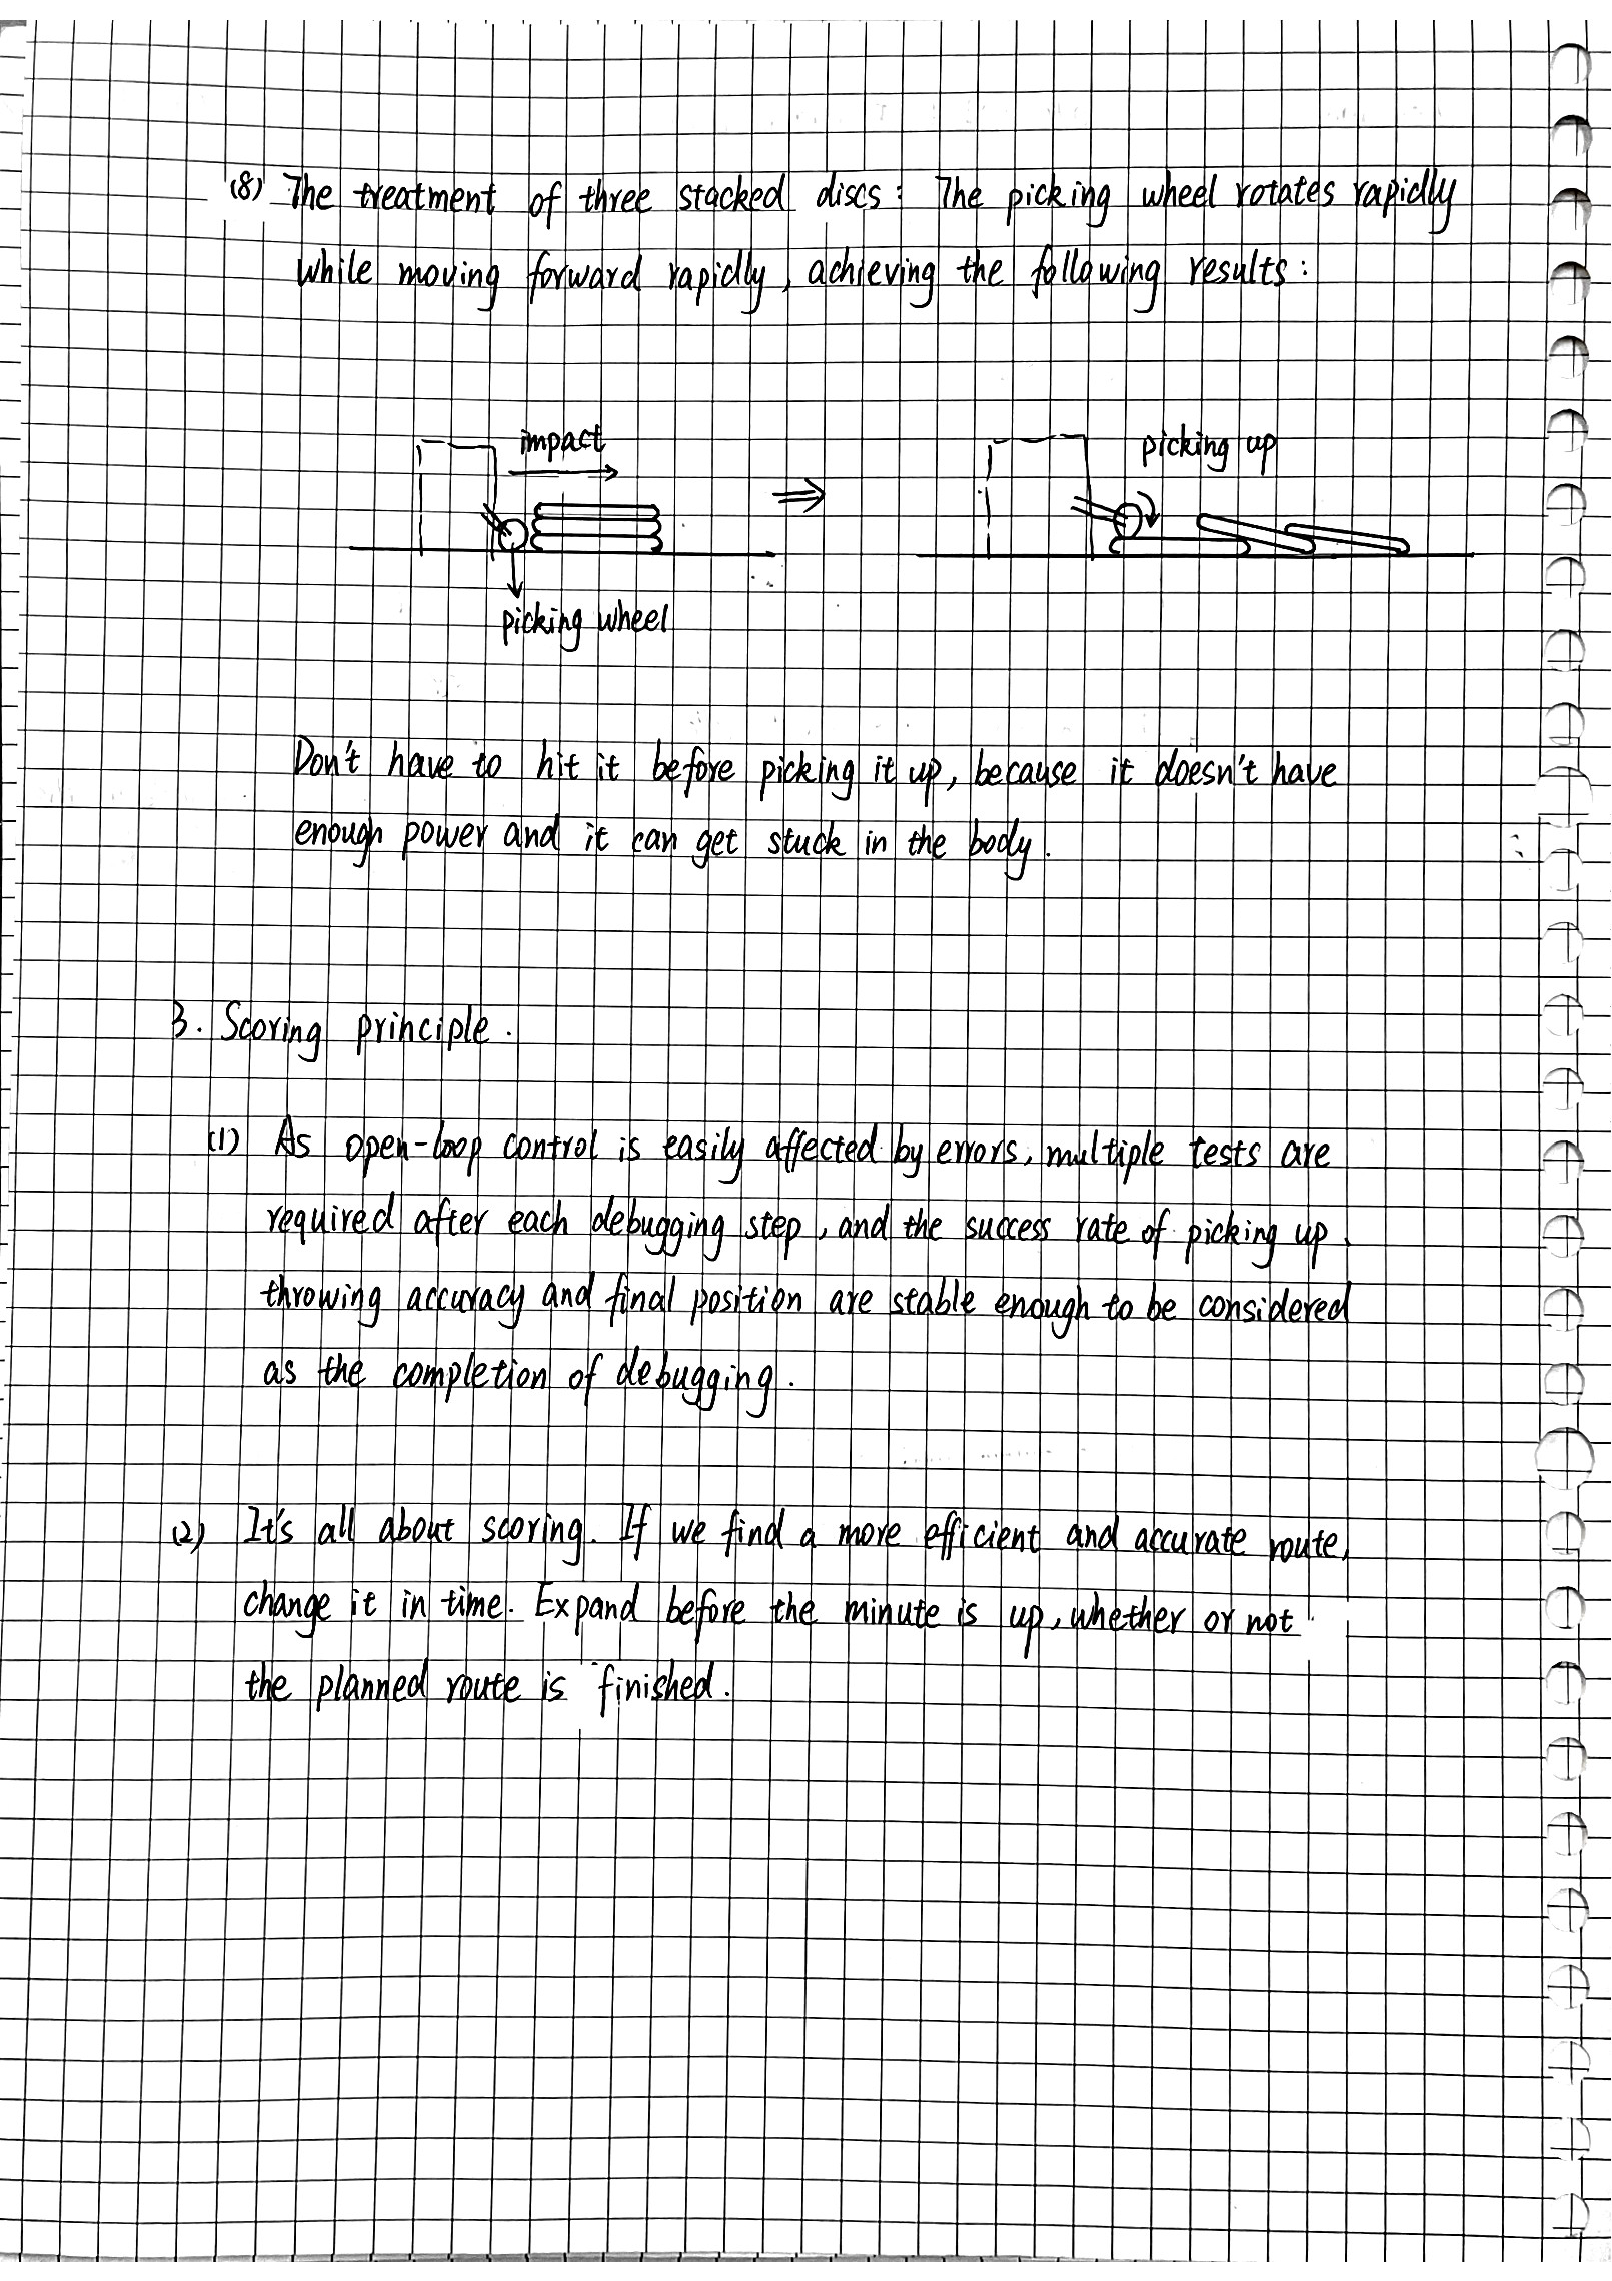 (8) The treatment of three stacked discs: The picking wheel rotates rapidly
while moving forward rapidly, achieving the following results:
impact
picking up
picking wheel
Don't have to hit it before picking it up, because it doesn't have
enough power and it can get stuck in the body.
3. Scoring principle.
(1) As open-loop control is easily affected by errors, multiple tests are
required after each debugging step, and the success rate of picking up,
throwing accuracy and final position are stable enough to be considered
as the completion of debugging.
(2) It's all about scoring. If we find a more efficient and accurate route,
change it in time. Expand before the minute is up, whether or not
the planned route is finished.